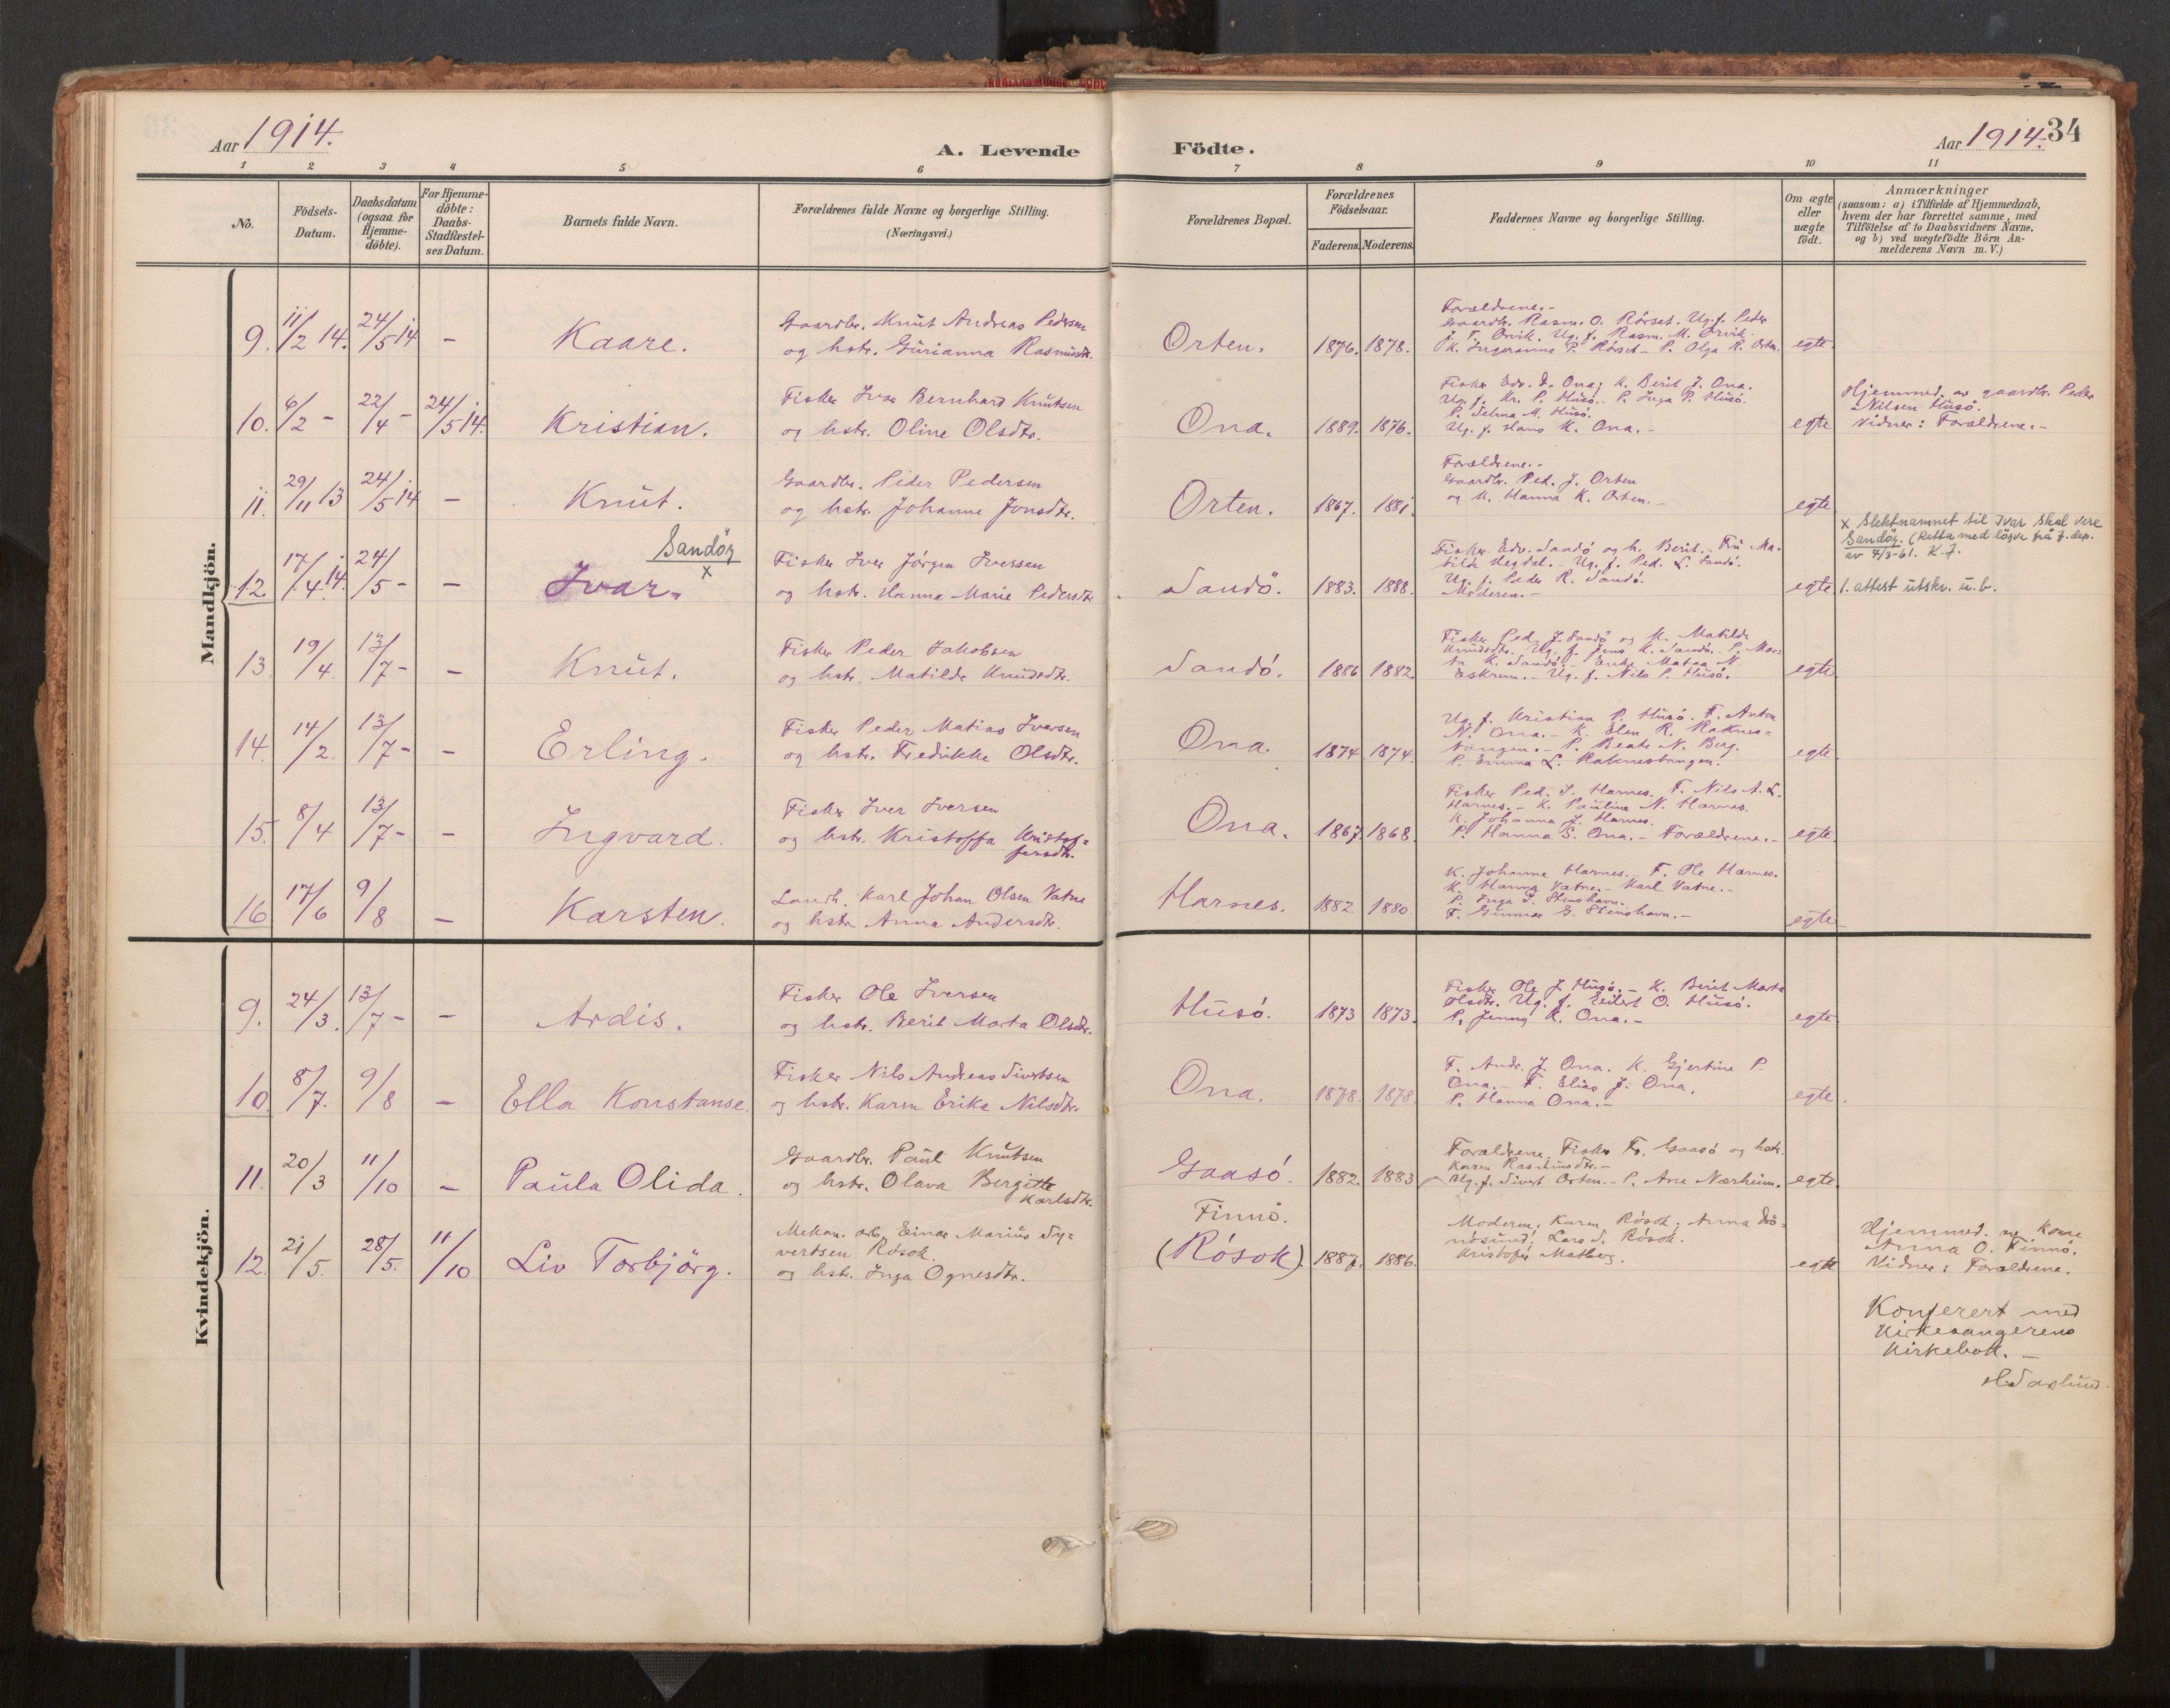 Aar 1914.
A. Levende Födte.
Aar 1914. 34
1 2 3 4 5 6 7 8 9 10 11
No.
Födsels-
Datum.
Daabsdatum
(ogsaa for
Hjemme-
döbte).
For Hjemme-
döbte:
Daabs-
Stadfæstel-
ses Datum.
Barnets fulde Navn.
Forældrenes fulde Navne og borgerlige Stilling.
(Næringsvei.)
Forældrenes Bopæl.
Forældrenes
Födselsaar.
Faderens. Moderens.
Faddernes Navne og borgerlige Stilling.
Om ægte
eller
uægte
födt.
Anmærkninger
(saasom: a) i Tilfælde af Hjemmedaab,
hvem der har forrettet samme, med
Tilföielse af to Daabsvidners Navne,
og b) ved uægtefödte Börn An-
melderens Navn m. V.)
Mandkjön.
9. 11/2 14. 24/5 14 - Kaare.
Gaardbr. Knut Andreas Pedersen
og hstr. Gurianna Rasmusdtr.
Orten. 1876. 1878.
Forældrene.-
Gaardbr. Rasm. O. Rörset. Ug. f. Peder
J. F. Orvik. Ug. f. Rasm. M. Orvik.
K. Ingeranna P. Rörset - P. Olga R. Orten.
egte.
10. 6/2 - 22/4 - 24/5 14. Kristian.
Fisker Ivar Bernhard Knutsen
og hstr. Oline Olsdtr.
Ona. 1889. 1876.
Fisker Edv. D. Ona; K. Berit J. Ona.
Ug. f. Kr. P. Husö. P. Inga P. Husö.
P. Selma M. Husö.
Ug. f. Hans K. Ona. -
egte
Hjemmed. av gaardbr. Peder
Nilsen Husö.
Vidner: Forældrene. -
11. 29/11 13 24/5 14 - Knut.
Gaardbr. Peder Pedersen
og hstr. Johanne Jonsdtr.
Orten. 1867. 1881.
Forældrene..
Gaardbr. Ped. J. Orten
og K. Hanna K. Orten. -
egte
12 17/4. 14. 24/5 - - Ivar.
Sandöy
x
Fisker Iver Jörgen Iversen
og hstr. Hanna Marie Pedersdtr
Sandö. 1883. 1888.
Fisker Edv. Sandö og h. Berit. Fru Ma-
tilde Hegdal. - Ug. f. Ped. L. Sandö.
Ug. f. Peder R. Sandö.
Moderen. -
egte
x Slektnamnet til Ivar skal vere
Sandöy. (Retta med löyve frå j. dep.
av 4/3-61. K.J.
1. attest utskr. u.b.
13. 19/4. 13/7 - - Knut.
Fisker Peder Jakobsen
og hstr. Matilde Knudsdtr.
Sandö. 1886 1882.
Fisker Ped. J. Sandö og K. Matilde
Knudsdtr. Ug. f. Jens K. Sandö. P. Mar-
ta K. Sandö. - Enke Matea N.
Eskrem. - Ug. f. Nils P. Husö.
egte
14. 14/2. 13/7 - - Erling.
Fisker Peder Matias Iversen
og hstr. Fredrikke Olsdtr.
Ona. 1874. 1874.
Ug. f. Kristian P. Husö. F. Anton
N. Ona. - K. Elen R. Raknes-
tangen. - P. Beate N. Berg.
P. Emma L. Raknestangen.
egte.
15. 8/4 13/7 - - Ingvard.
Fisker Iver Iversen
og hstr. Kristoffa Kristof-
fersdtr.
Ona. 1867. 1868.
Fisker Ped. I. Harnes. F. Nils A. L.
Harnes. - K. Pauline N. Harnes.
K. Johanna J. Harnes.
P. Hanna S. Ona. - Forældrene. -
egte
16 17/6 9/8 - Karsten.
Landh. Karl Johan Olsen Vatne
og hstr Anna Andersdtr.
Harnes. 1882. 1880.
K. Johanne Harnes. - F. Ole Harnes.
K. Hanna Vatne. - Karl Vatne. -
P. Inga J. Steinshavn.
F. Gunnar G. Steinshavn. -
egte
Kvindekjön.
9. 24/3. 13/7 - - Ardis.
Fisker Ole Iversen
og hstr. Berit Marta Olsdtr.
Husö. 1873 1873.
Fisker Ole J. Husö. - K. Berit Marta
Olsdtr. Ug. f. Eilert O. Husö.
P. Jenny K. Ona. -
egte.
10 8/7. 9/8 - Ella Konstanse.
Fisker Nils Andreas Sivertsen
og hstr. Karen Erika Nilsdtr.
Ona. 1878. 1878
F. Andr. J. Ona. K. Gjertine P.
Ona. - F. Elias J. Ona.
P. Hanna Ona. -
egte.
11. 20/3 11/10 - Paula Olida.
Gaardbr. Paul Knutsen
og hstr. Olava Bergitte
Karlsdtr.
Gaasö. 1882. 1883
Forældrene. Fisker Fr. Gaasö og hstr.
Karen Rasmusdtr. -
Ug. f. Sivert Orten. - P. Ane Nærheim.
egte.
12. 21/5. 28/5. 11/10 Liv Torbjörg.
Mekan. arb. Einar Marius Sy-
vertsen Rösok
og hstr. Inga Ognesdtr.
Finnö.
(Rösok). 1887. 1886.
Moderen; Karen Rösok; Anna Brö-
nösund; Lars S. Rösok.
Kristofer Malberg.
egte
Hjemmed. av Kone
Anna O. Finnö.
Vidner: Forældrene.
Konferert med
Kirkesangerens
Kirkebok. -